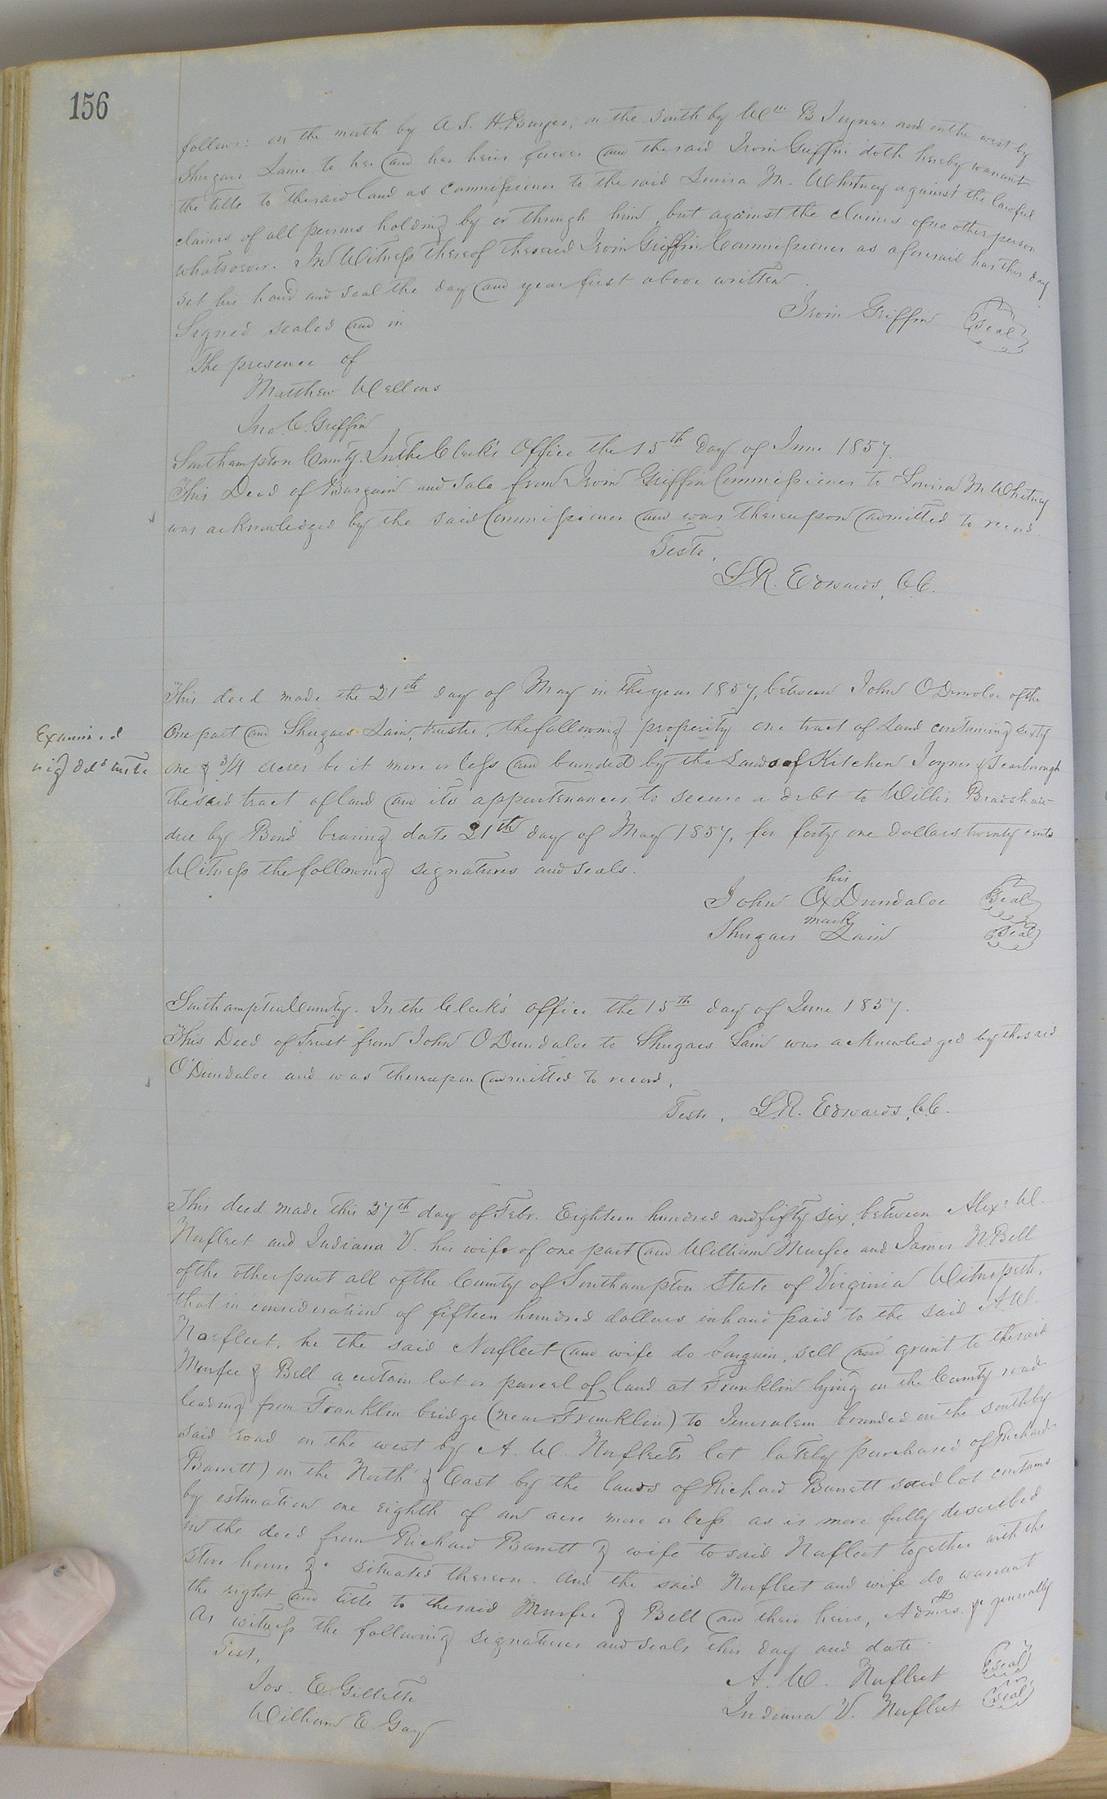 156
follows: on the north by A. S. H. Burges, on the South by Wm B Joyner and on the west by
Shugars Lain to her and her heirs forever and the said Irvin Griffin doth hereby warrant
the title to the said land as commissioner to the said Louisa M. Whitney against the lawful
claims of all persons holding by or through him, but against the claims of no other person
whatsoever. In Witness thereof the said Irvin Griffin Commissioner as aforesaid has this day
set his hand and seal the day and year first above written.
Signed sealed and in
Irvin Griffin Seal
the presence of
Matthew Wellons
Jno. C. Griffin
Southampton County. In the Clerk's Office the 15th day of June 1857.
This Deed of Bargain and Sale from Irvin Griffin Commissioner to Louisa M Whitney
was acknowledged by the said Commissioner and was thereupon admitted to record.
Teste,
L. R. Edwards, C. C.
This deed made the 21th day of May in the year 1857, between John O Dundaloe of the
Examined
one part and Shugars Lain, trustee, the following property one tract of Land containing sixty
one & 3/4 acres be it more or less and bounded by the Lands of Kitchen Joyner & Scarborough
the said tract of land and its appurtenances to secure a debt to Willis Bradshaw
due by Bond bearing date 21th day of May 1857, for forty one dollars twenty cents
Witness the following signatures and seals.
his
John O x Dundaloe Seal
mark
Shugars Lain Seal
Southampton County. In the Clerk's office the 15th day of June 1857.
This Deed of Trust from John O Dundaloe to Shugars Lain was acknowledged by the said
O'Dundaloe and was thereupon admitted to record.
Teste, L. R. Edwards, C. C.
This deed made this 27th day of Febr. Eighteen hundred and fifty six, between Alexr W.
Norfleet and Indiana V. his wife of one part and William Murfee and James N Bell
of the other part all of the County of Southampton State of Virginia Witnesseth,
that in consideration of fifteen hundred dollars in hand paid to the said A. W.
Norfleet, he the said Norfleet and wife do bargain, sell and grant to the said
Murfee & Bell a certain lot or parcel of land at Franklin lying on the County road
leading from Franklin bridge (near Franklin) to Jerusalem bounded on the south by
said road on the west by A. W. Norfleets lot lately purchased of Richard
Barrett) on the North & East by the lands of Richard Barrett said lot contains
by estimation one eighth of an acre more or less as is more fully described
in the deed from Richard Barrett & wife to said Norfleet together with the
store house &c situated thereon. And the said Norfleet and wife do warrant
the right and title to the said Murfee & Bell and their heirs, Admrs. &c generally
As witness the following signatures and seals this day and date.
Test,
Jos. E. Gillette
A. W. Norfleet Seal
William E Gay
Indiana V. Norfleet Seal